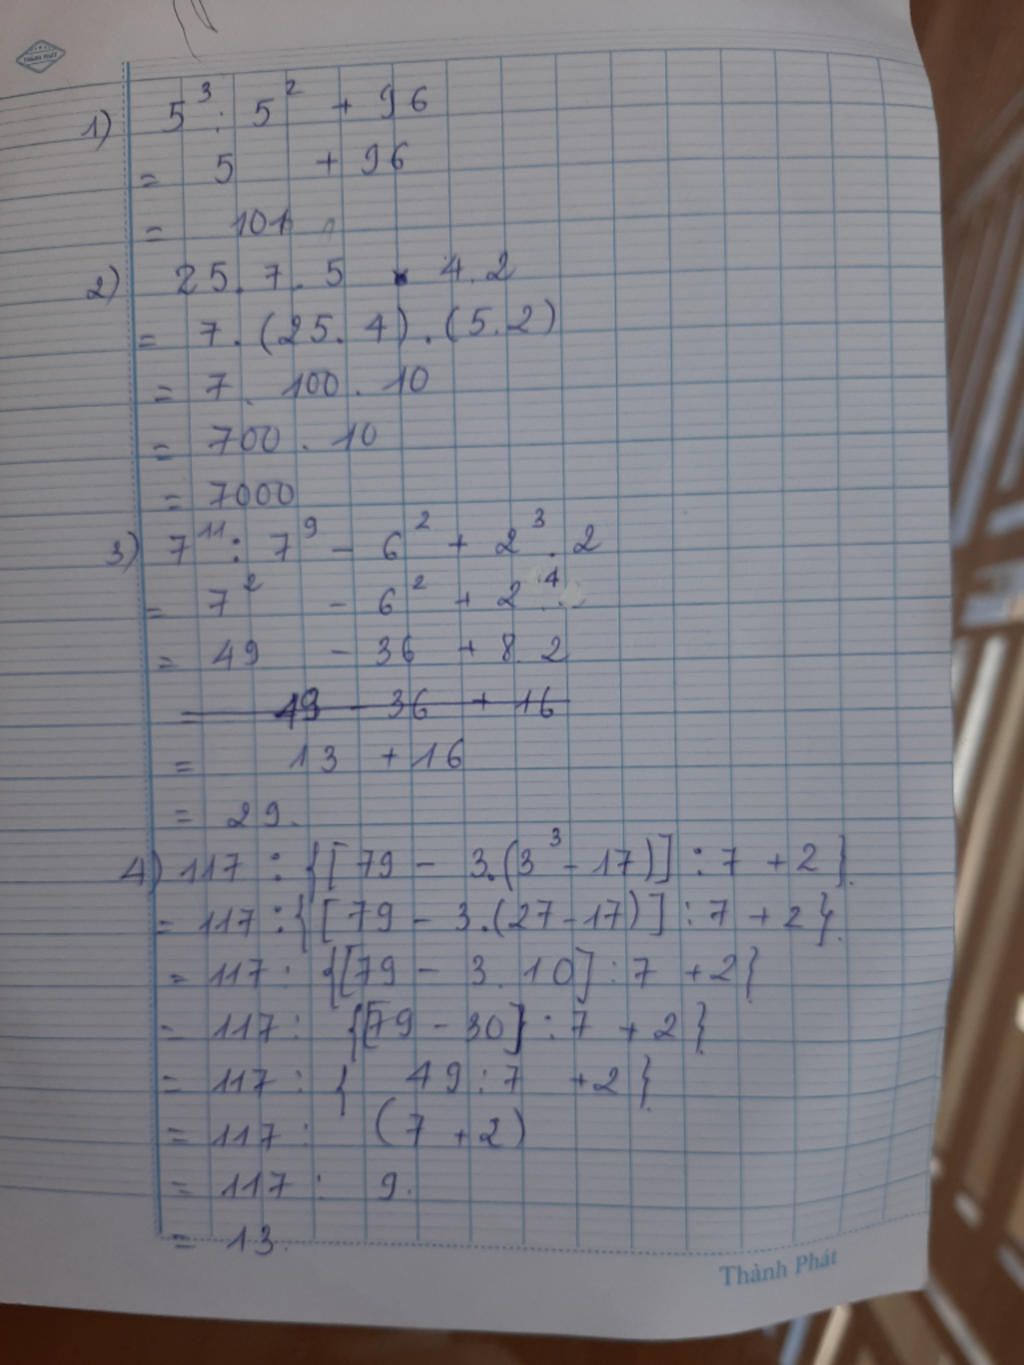 THÀNH PHÁT
1) 5³ : 5² + 96
= 5 + 96
= 101
2) 25 . 7 . 5 . 4 . 2
= 7 . (25 . 4) . (5 . 2)
= 7 . 100 . 10
= 700 . 10
= 7000
3) 7¹¹ : 7⁹ - 6² + 2³ . 2
= 7² - 6² + 2⁴
= 49 - 36 + 8 . 2
= 49 - 36 + 16
= 13 + 16
= 29.
4) 117 : {[79 - 3.(3³ - 17)] : 7 + 2}
= 117 : {[79 - 3.(27 - 17)] : 7 + 2}
= 117 : {[79 - 3 . 10] : 7 + 2}
= 117 : {[79 - 30] : 7 + 2}
= 117 : { 49 : 7 + 2}
= 117 : (7 + 2)
= 117 : 9.
= 13.
Thành Phát